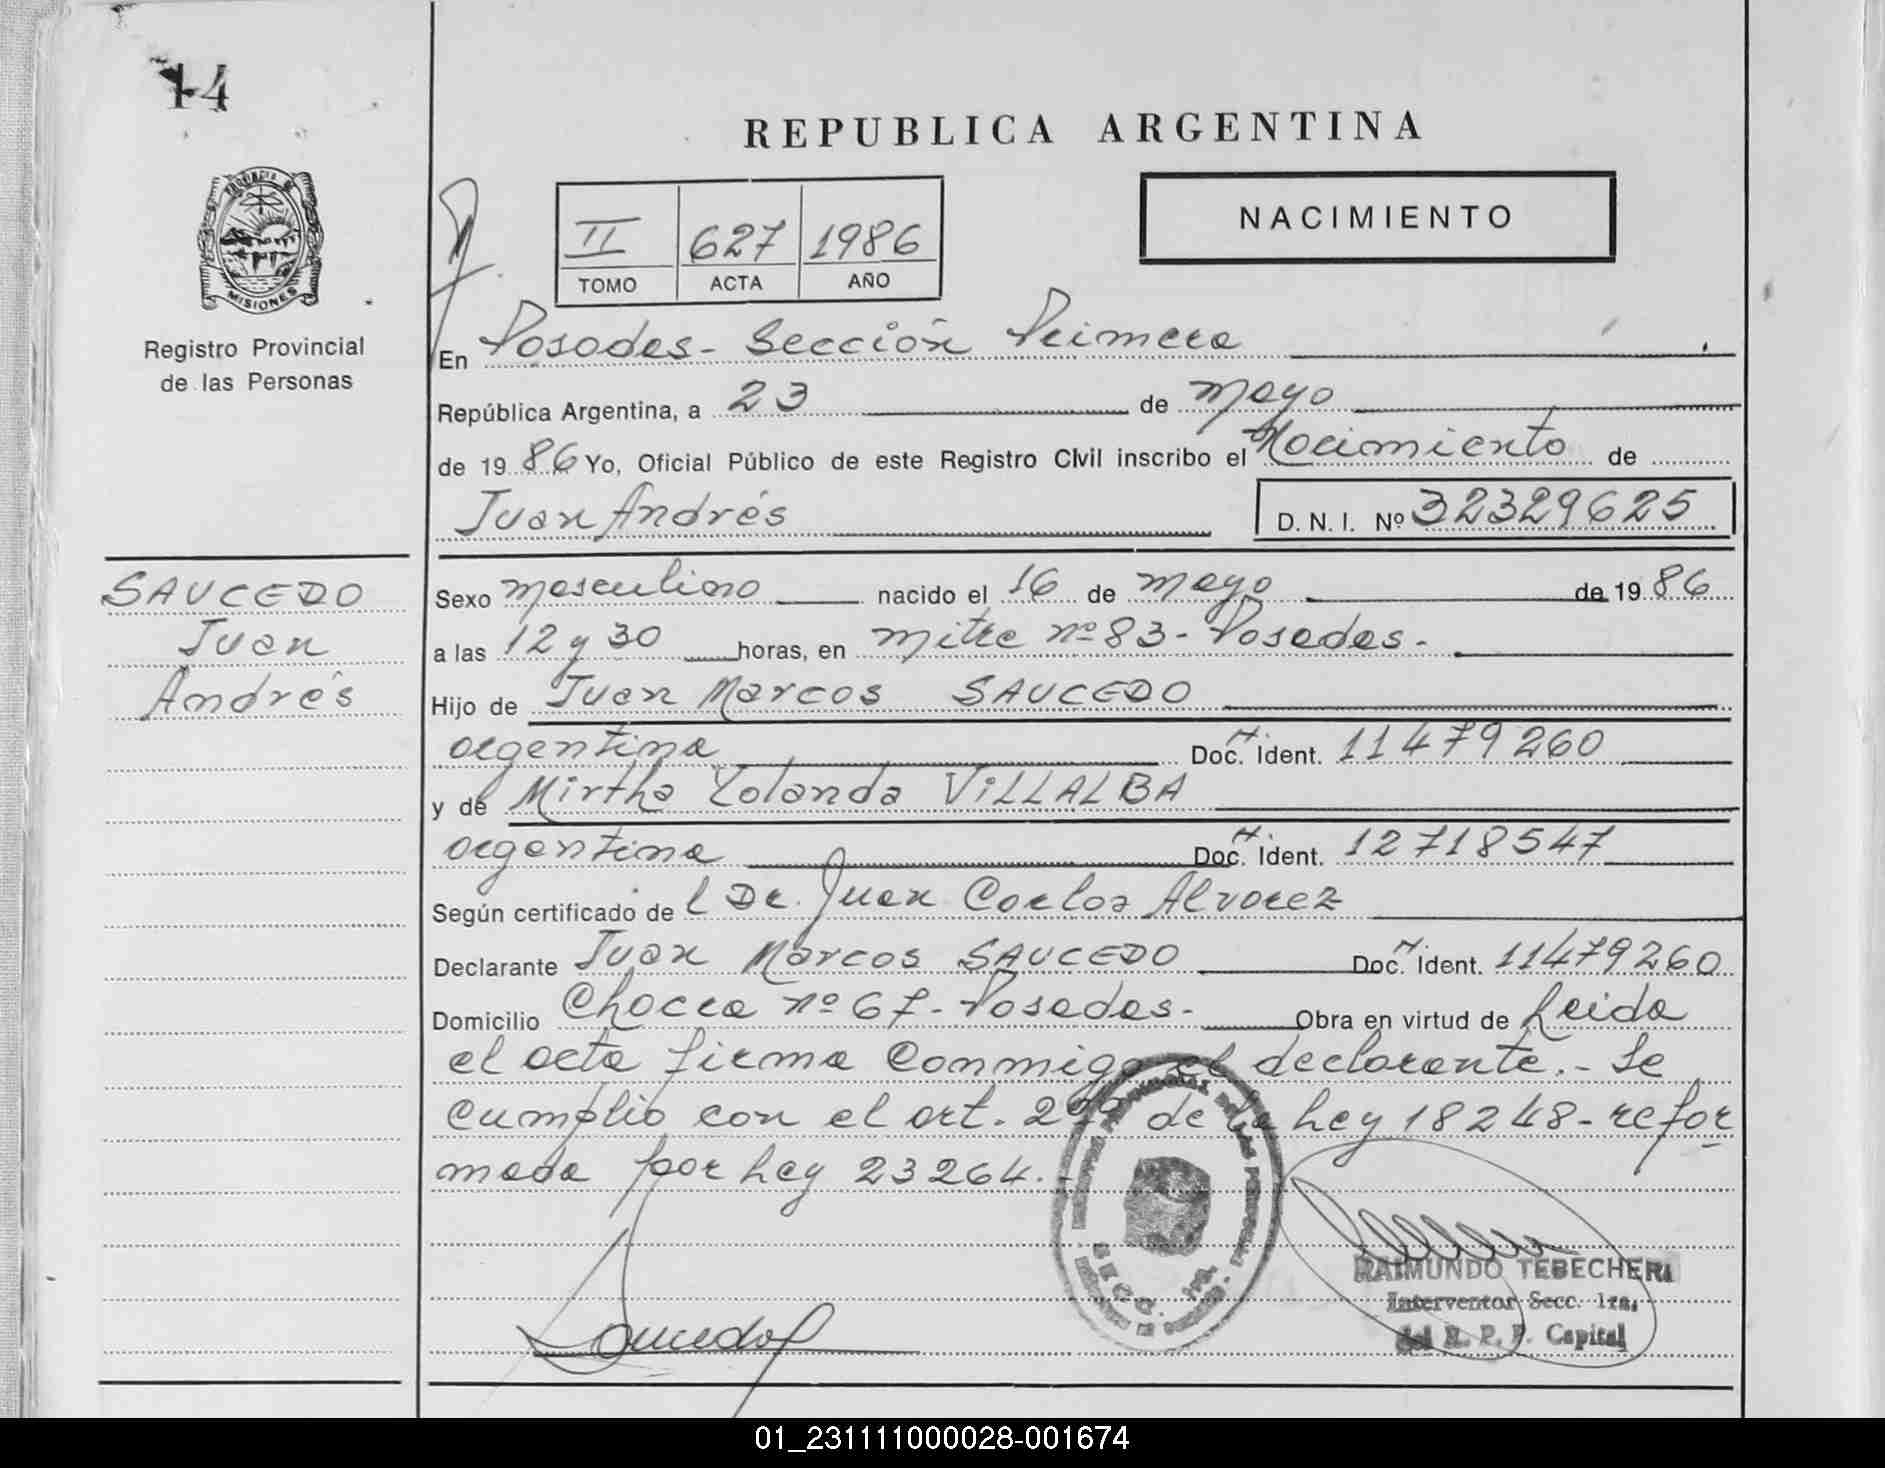 14
REPUBLICA ARGENTINA
PROVINCIA DE
MISIONES
Registro Provincial
de las Personas
II 627 1986
TOMO ACTA AÑO
NACIMIENTO
En Posadas - Sección Primera
República Argentina, a 23 de mayo
de 1986 Yo, Oficial Público de este Registro Civil inscribo el Nacimiento de
Juan Andrés D. N. I. Nº 32329625
SAUCEDO
Juan
Andrés
Sexo masculino nacido el 16 de mayo de 1986
a las 12 y 30 horas, en Mitre nº 83 - Posadas.
Hijo de Juan Marcos SAUCEDO
argentina Doc. Ident. 11479260
y de Mirtha Yolanda VILLALBA
argentina Doc. Ident. 12718547
Según certificado del Dr. Juan Carlos Alvarez
Declarante Juan Marcos SAUCEDO Doc. Ident. 11479260
Domicilio Nº 67 - Posadas - Obra en virtud de Leida
el acta firma conmigo el declarante. - Se
cumplió con el art. de la Ley 18248 - refor
mada por Ley 23264. -
SECC. 1ra.
Saucedo
RAIMUNDO TEBECHERI
Interventor Secc. 1ra.
del R. P. P. Capital
01_231111000028-001674